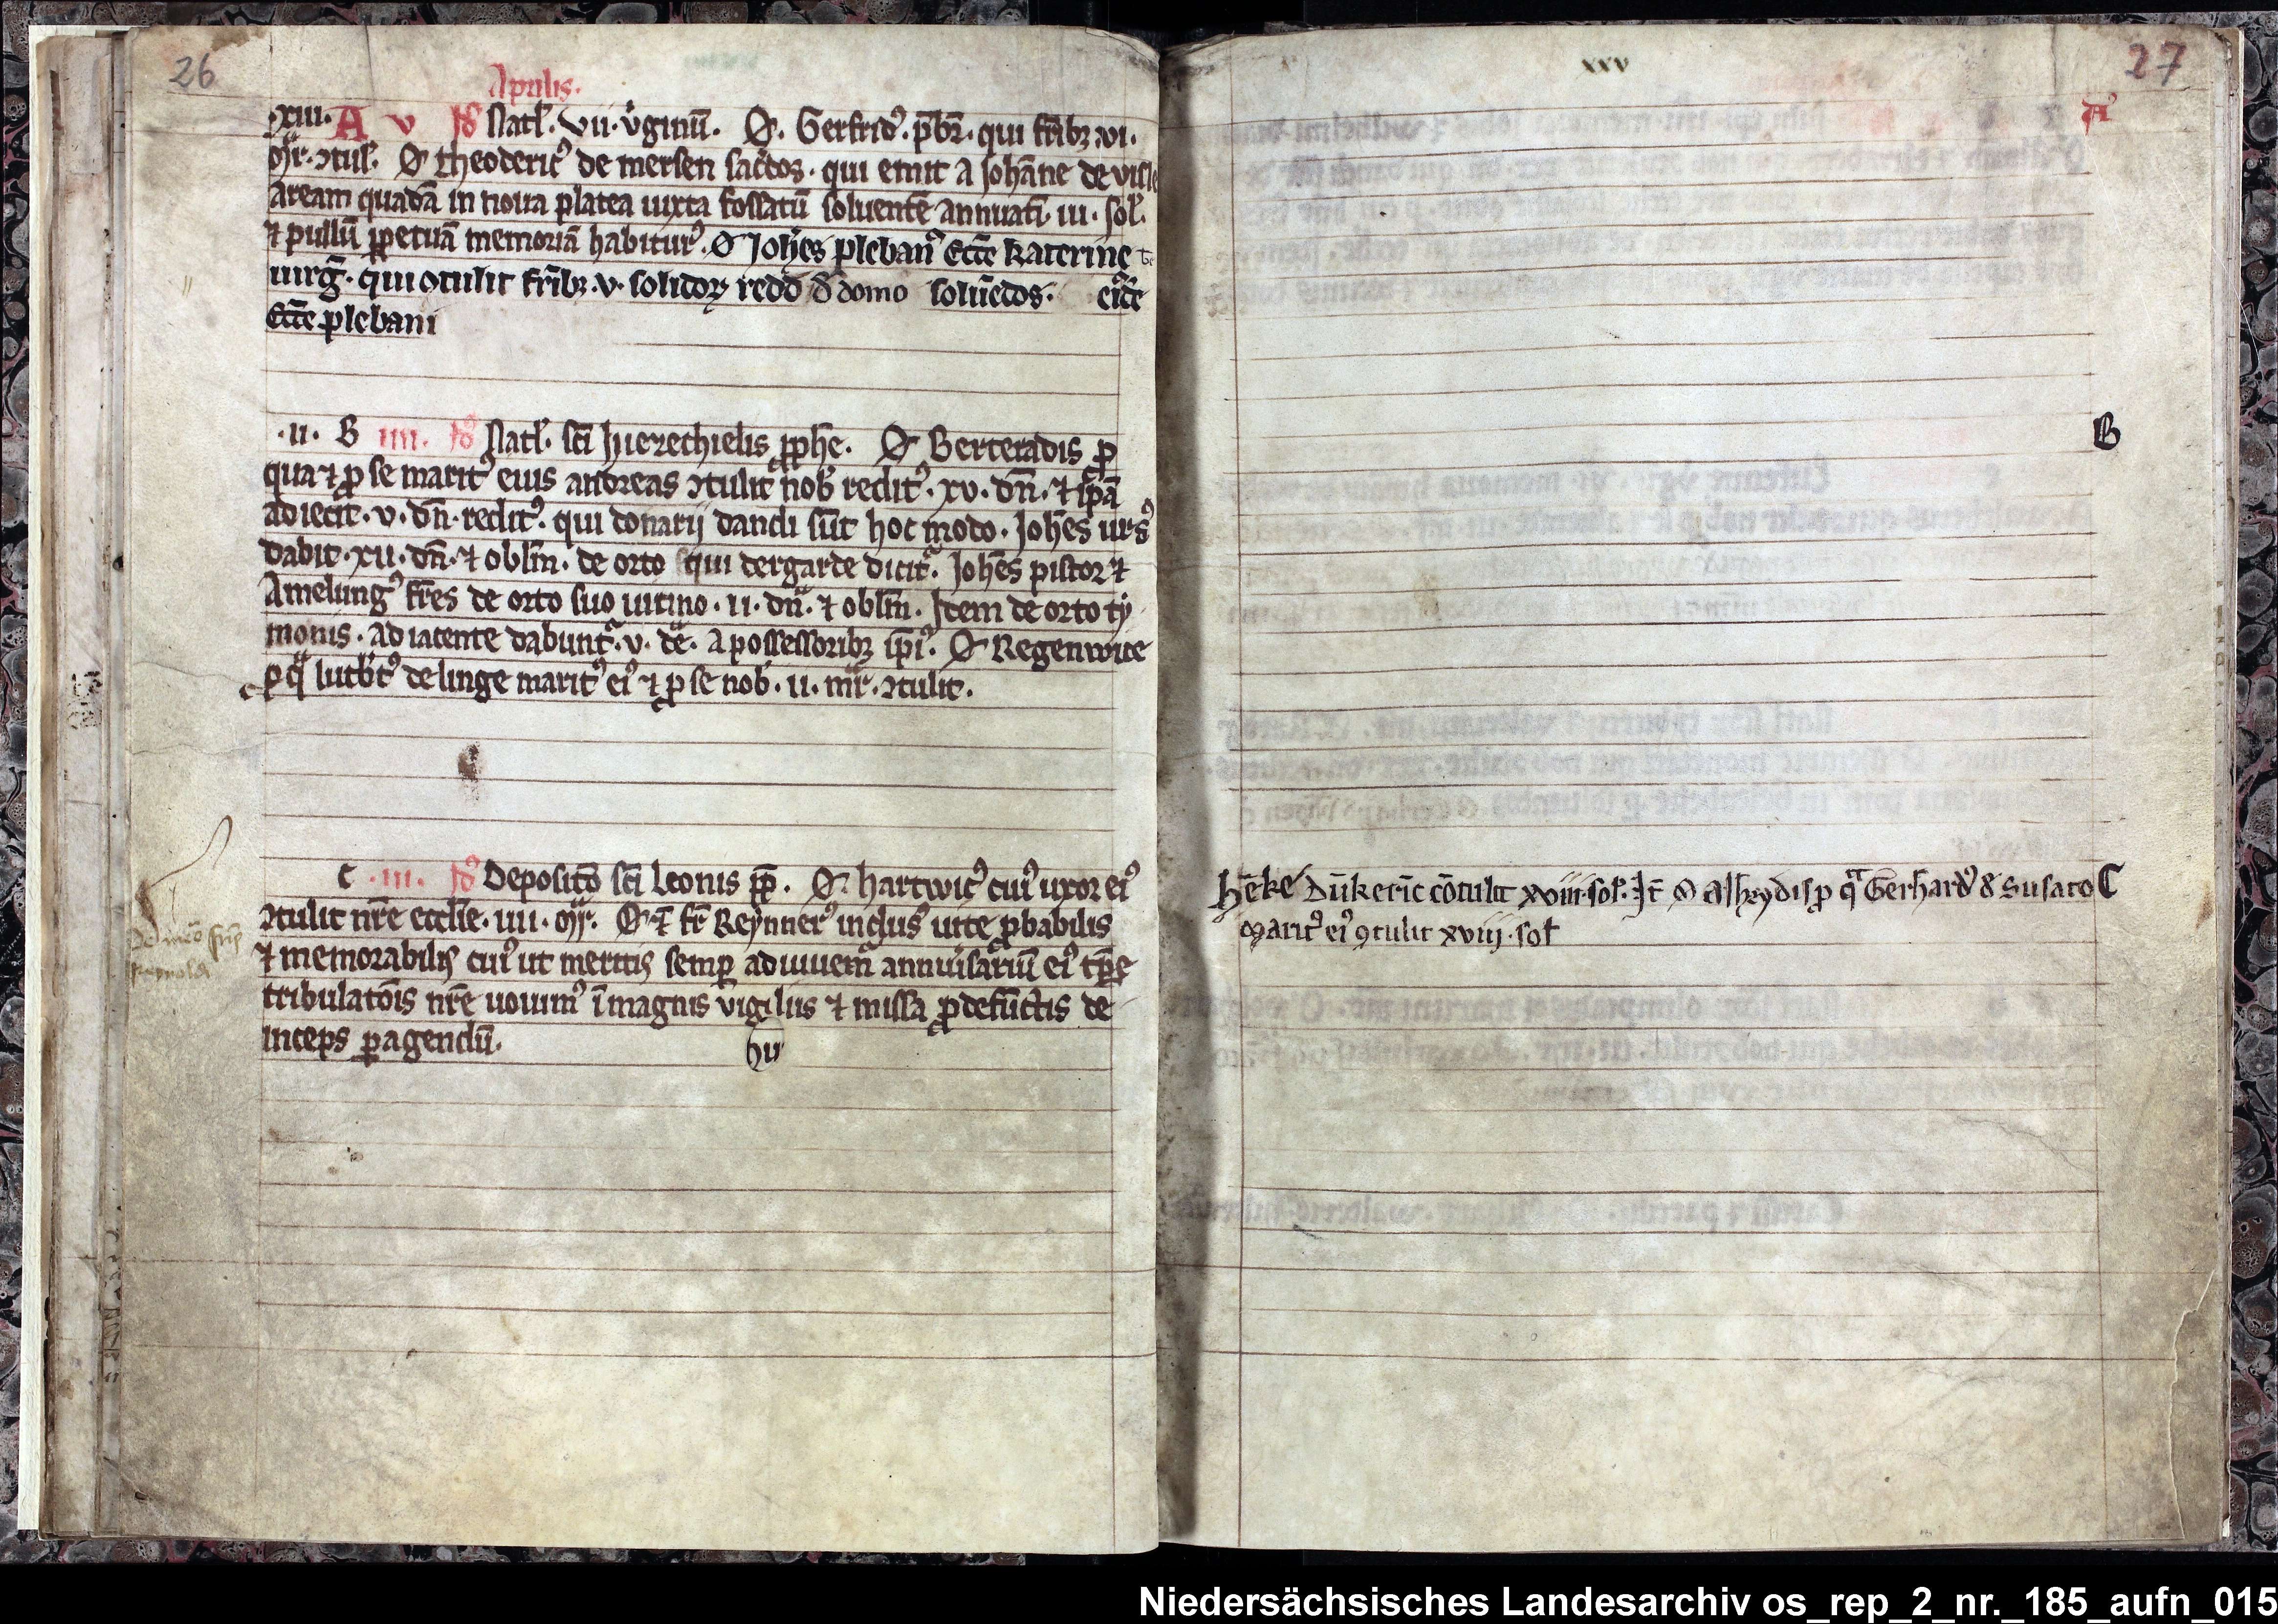 26
Aprilis.
.xiii. A v Jd' Natl'. vii. v'ginū. O. Gerfrid9. p̄br̄. qui fr̄ib3 .vi.
mr̄. ɔtul'. O theoderic9 de mersen sac̄dos. qui emit a Johāne de
aream quadā in noua platea iuxta fossatū soluentē annuatī. iii. sol'.
⁊ pullū ꝑpetuā memoriā habitur9. O Joh̄es pleban9 ecc̄e katerine
uirḡ. qui ɔtulit fr̄ib3 .v. solidoꝝ redd' d' domo soluēdos. eiꝰdē
ecc̄e plebani
.ii. B iiii. Jd' Natl'. sc̄i hiezechielis ꝓph̄e. O Berteradis ꝓ
qua ⁊ ꝓ se marit9 eius andreas ɔtulit nob' redit9. xv. dn̄. ⁊ ip̄a
adiecit. v. dn̄. redit9. qui donarij dandi sūt hoc modo. Joh̄es urs9
dabit. xii. dn̄. ⁊ obl'm. de orto qui dergarde dicit̉. Joh̄es pistor ⁊
Amelung9 fr̄es de orto suo uitino. ii. dn̄. ⁊ obl'm. Jtem de orto ty
monis. adiacente dabunt̉. v. dē. a possessorib3 ip̄i9. O Regenwice
ꝓ qͣ lutb't9 de linge marit9 ei9 ⁊ ꝓ se nob'. ii. mr̄. ɔtulit.
C .iii. Jd' Deposicō sc̄i Leonis pp̄. O hartwic9 cui9 uxor ei9
ɔtulit nr̄e eccl'ie. iiii. mr̄. O ⁊ fr̄ Reyner9 inclus9 uite ꝓbabilis
⁊ memorabilis cui9 ut meritis semꝑ adiuuem̉ anniu'sariū ei9 tp̄e
tribulatōis nr̄e uouim9 ī magnis vigiliis ⁊ missa ꝓ defūctis de
inceps ꝑagendū.
xxv
27
A
B
Hēke Dūkeric cōtulit xviii. sol'. Jt̄ O Alheydis ꝓ qͣ Gerhard9 d' Susato C
marit9 ei9 ɔtulit xviij. sol'
Niedersächsisches Landesarchiv os_rep_2_nr._185_aufn_015